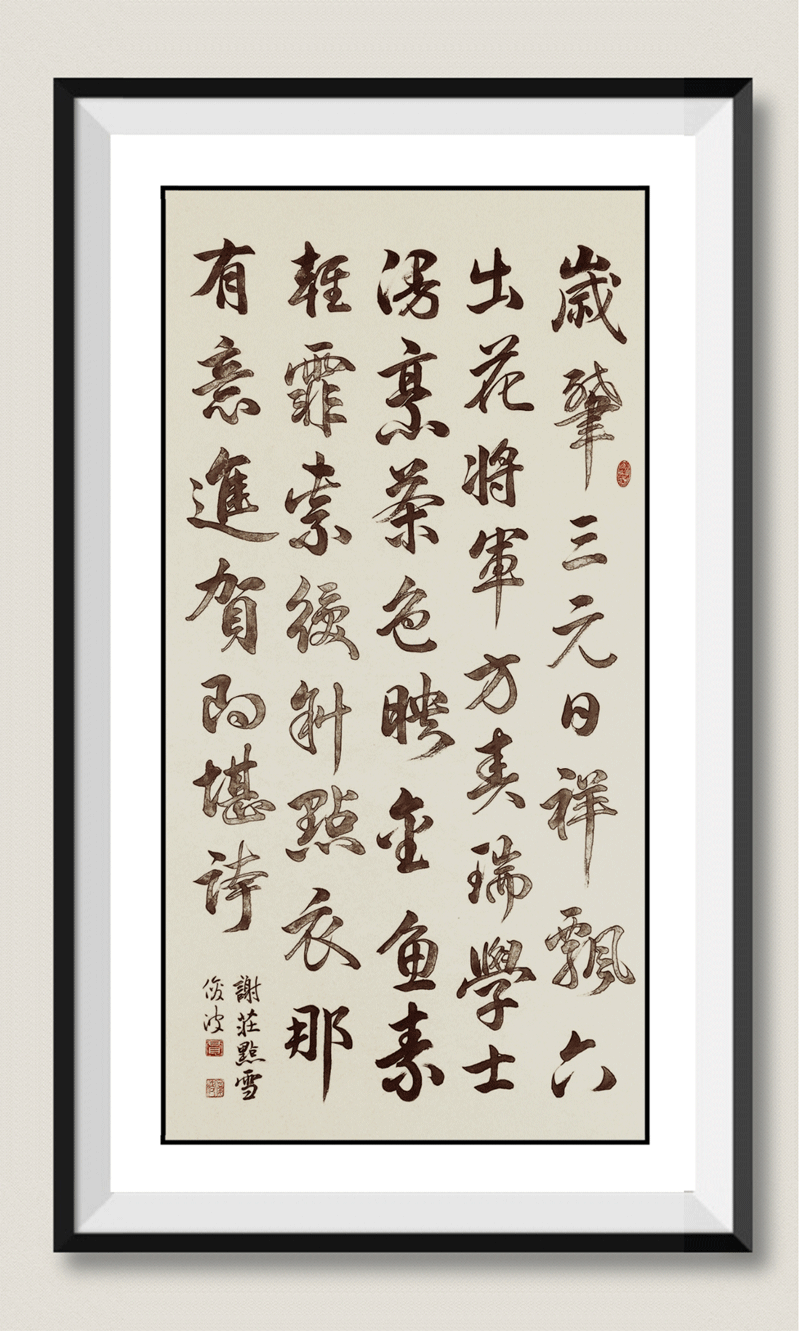 歲肇三元日祥飄六
出花将軍方奏瑞學士
漫烹茶色映金魚素
輕霏索後斜點衣那
有意進賀即堪詩
謝莊點雪
俊波